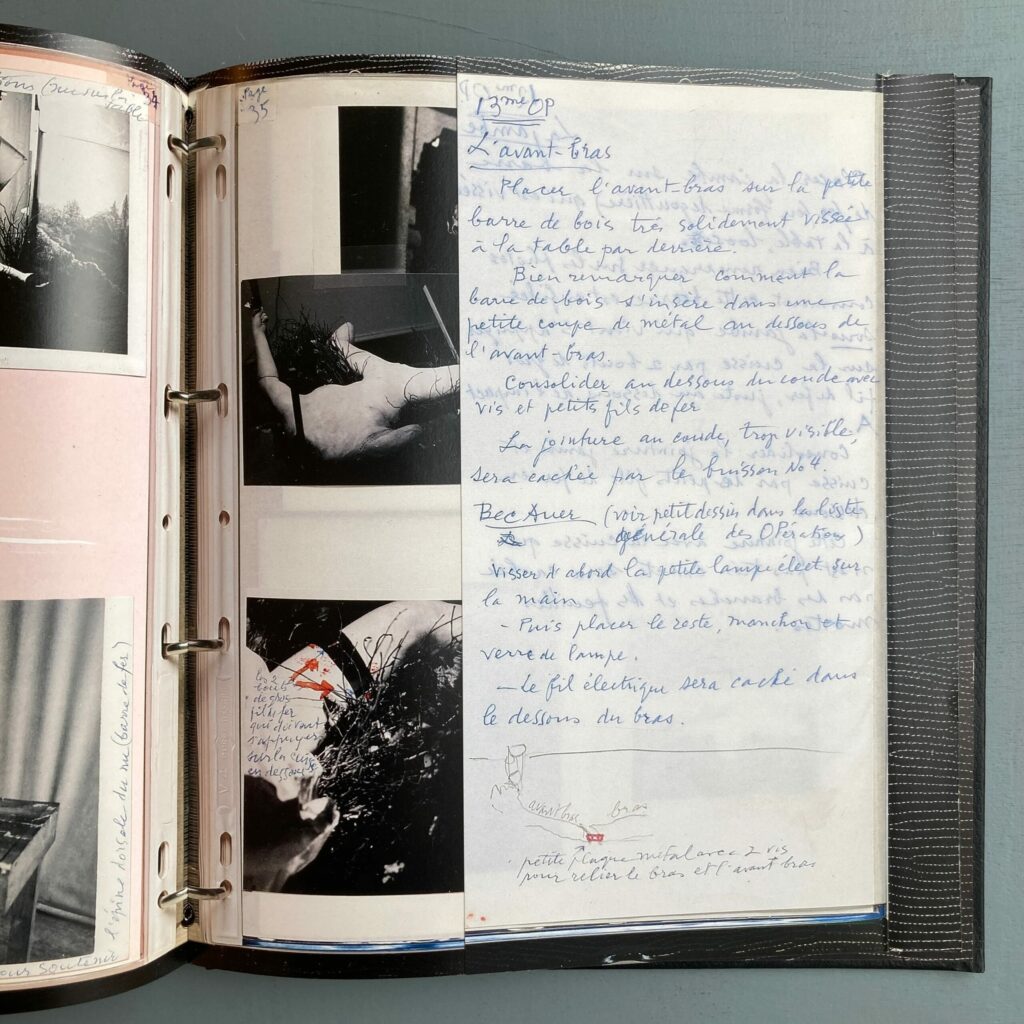 Page
35
13me OP
L'avant-bras
Placer l'avant-bras sur la petite
barre de bois très solidement vissée
à la table par derrière.
Bien remarquer comment la
barre de bois s'insère dans une
petite coupe de métal au dessous de
l'avant-bras.
Consolider au dessous du coude avec
vis et petits fils de fer
La jointure au coude, trop visible,
sera cachée par le buisson No 4.
Bec Auer (voir petit dessin dans la liste
générale des OPérations)
Visser d'abord la petite lampe élect sur
la main
- Puis placer le reste, manchon et
verre de lampe.
- Le fil électrique sera caché dans
le dessous du bras.
avant bras
bras
petite plaque métal avec 2 vis
pour relier le bras et l'avant bras
les 2
bouts
de gros
fil de fer
qui doivent
s'appuyer
sur la cuisse
en dessous
l'épine dorsale du nu (barre de fer)
pour soutenir